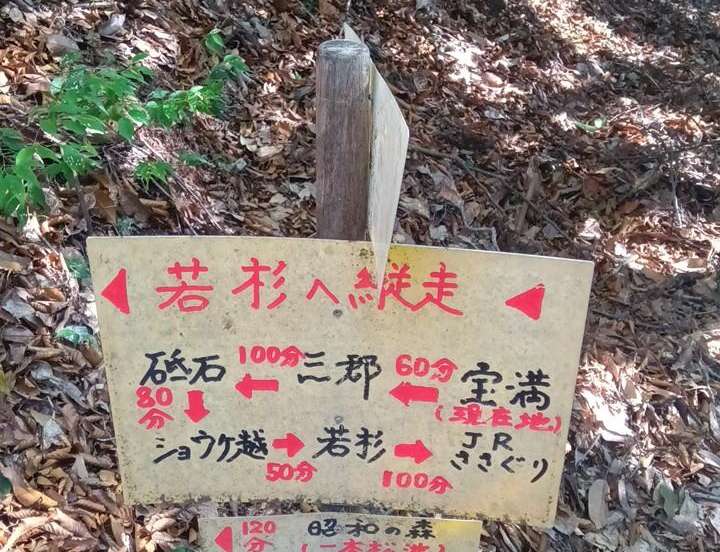 若杉へ縦走
砥石 100分 三郡 60分 宝満
80分 (現在地)
ショウケ越 若杉 JRささぐり
50分 100分
120分 昭和の森
(一本杉